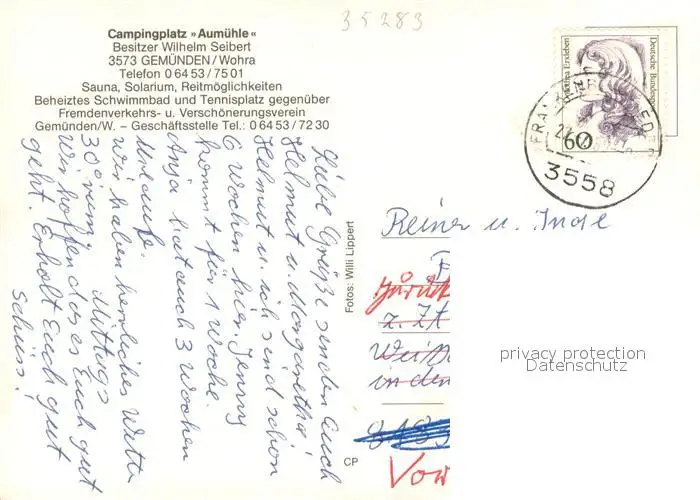 35283
Campingplatz »Aumühle«
Besitzer Wilhelm Seibert
3573 GEMÜNDEN/Wohra
Telefon 0 64 53 / 75 01
Sauna, Solarium, Reitmöglichkeiten
Beheiztes Schwimmbad und Tennisplatz gegenüber
Fremdenverkehrs- u. Verschönerungsverein
Gemünden/W. – Geschäftsstelle Tel.: 0 64 53 / 72 30
Liebe Grüße senden Euch
Helmut u. Margarethe!
Helmut u. ich sind schon
6 Wochen hier. Jenny
kommt für 1 Woche.
Anja hat auch 3 Wochen
Urlaub.
Wir haben herrliches Wetter
Mittags
30° rum.
Wir hoffen das es Euch gut
geht. Erholt Euch gut
Schüss!
Fotos: Willi Lippert
CP
Dorothea Erxleben
Deutsche Bundespost
60
3558
Reiner u. Inge
F
Zurück
z. Zt
Weiß
in den
Vor
privacy protection
Datenschutz